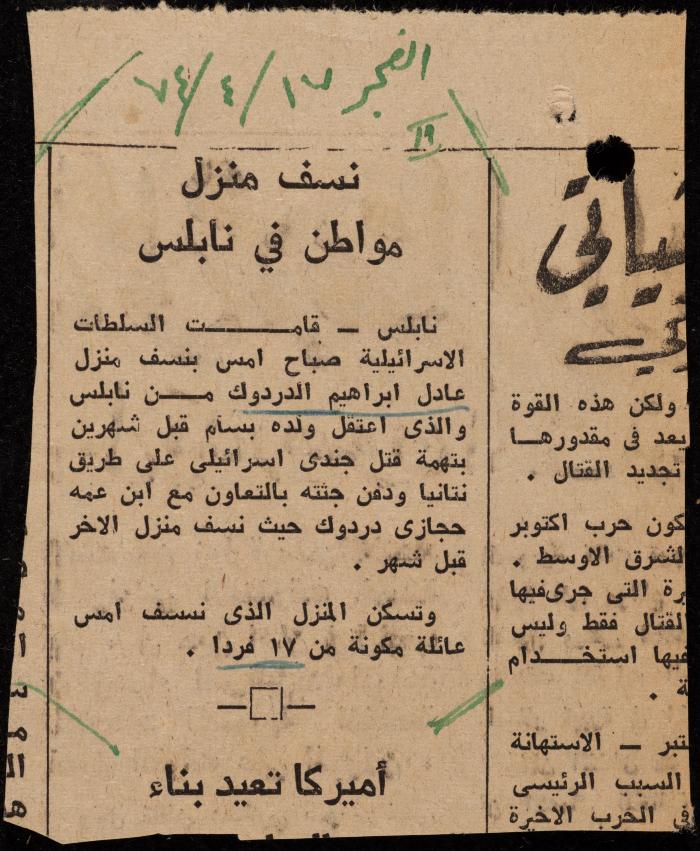 الفجر ١٧/٤/٧٤
١٩
نسف منزل
مواطن في نابلس
نابلس ــ قامـــت السلطات
الاسرائيلية صباح امس بنسف منزل
عادل ابراهيم الدردوك مــن نابلس
والذى اعتقل ولده بسام قبل شهرين
بتهمة قتل جندى اسرائيلى على طريق
نتانيا ودفن جثته بالتعاون مع ابن عمه
حجازى دردوك حيث نسف منزل الاخر
قبل شهر .
وتسكن المنزل الذى نسف امس
عائلة مكونة من ١٧ فردا .
أميركا تعيد بناء
ولكن هذه القوة
يعد فى مقدورهــا
تجديد القتال .
كون حرب اكتوبر
لشرق الاوسط .
رة التى جرى فيها
لقتال فقط وليس
فيها استخــدام
ة .
تبر ــ الاستهانة
السبب الرئيسى
فى الحرب الاخيرة